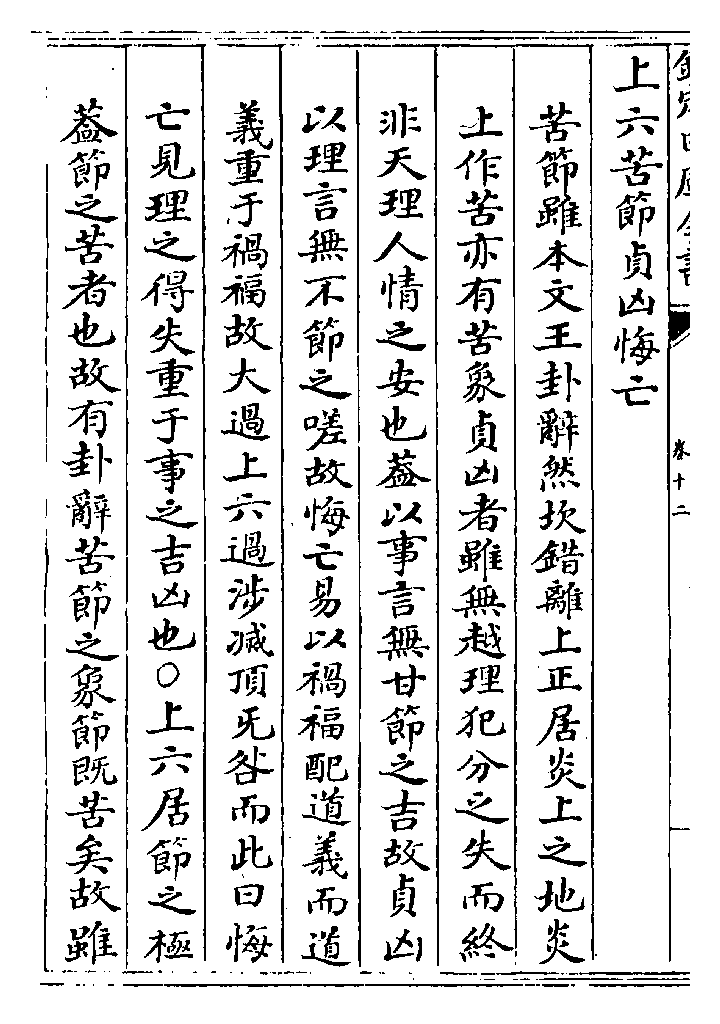 上六苦節貞凶悔亡
苦節雖本文王卦辭然坎錯離上正居炎上之地炎
上作苦亦有苦象貞凶者雖無越理犯分之失而終
非天理人情之安也葢以事言無甘節之吉故貞凶
以理言無不節之嗟故悔亡易以禍福配道義而道
義重于禍福故大過上六過涉滅頂旡咎而此曰悔
亡見理之得失重于事之吉凶也○上六居節之極
葢節之苦者也故有卦辭苦節之象節既苦矣故雖
卷十二